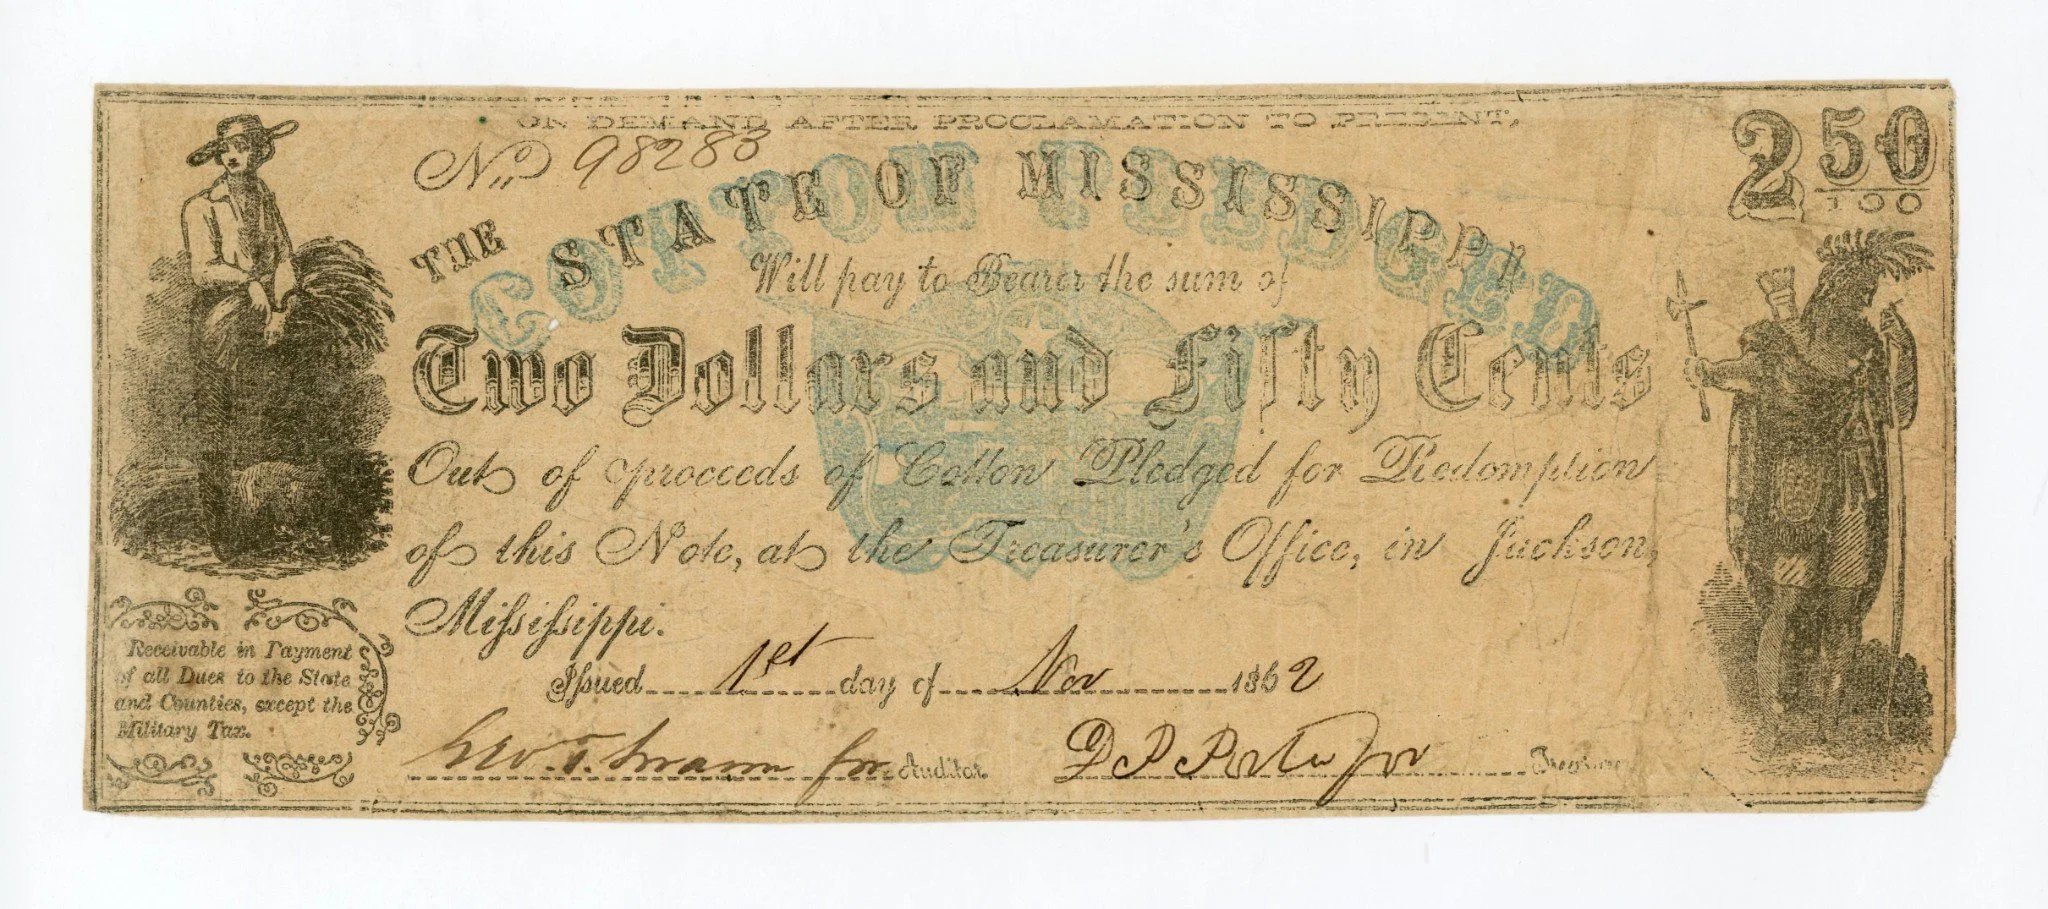 ON DEMAND AFTER PROCLAMATION TO PRESENT,
No. 98283
2 50/100
THE STATE OF MISSISSIPPI
COTTON PLEDGED
Will pay to Bearer the sum of
Two Dollars and Fifty Cents
Out of proceeds of Cotton Pledged for Redemption
of this Note, at the Treasurer's Office, in Jackson,
Mississippi.
Issued 1st day of Nov 1862
for Auditor
for Treasurer
Receivable in Payment
of all Dues to the State
and Counties, except the
Military Tax.